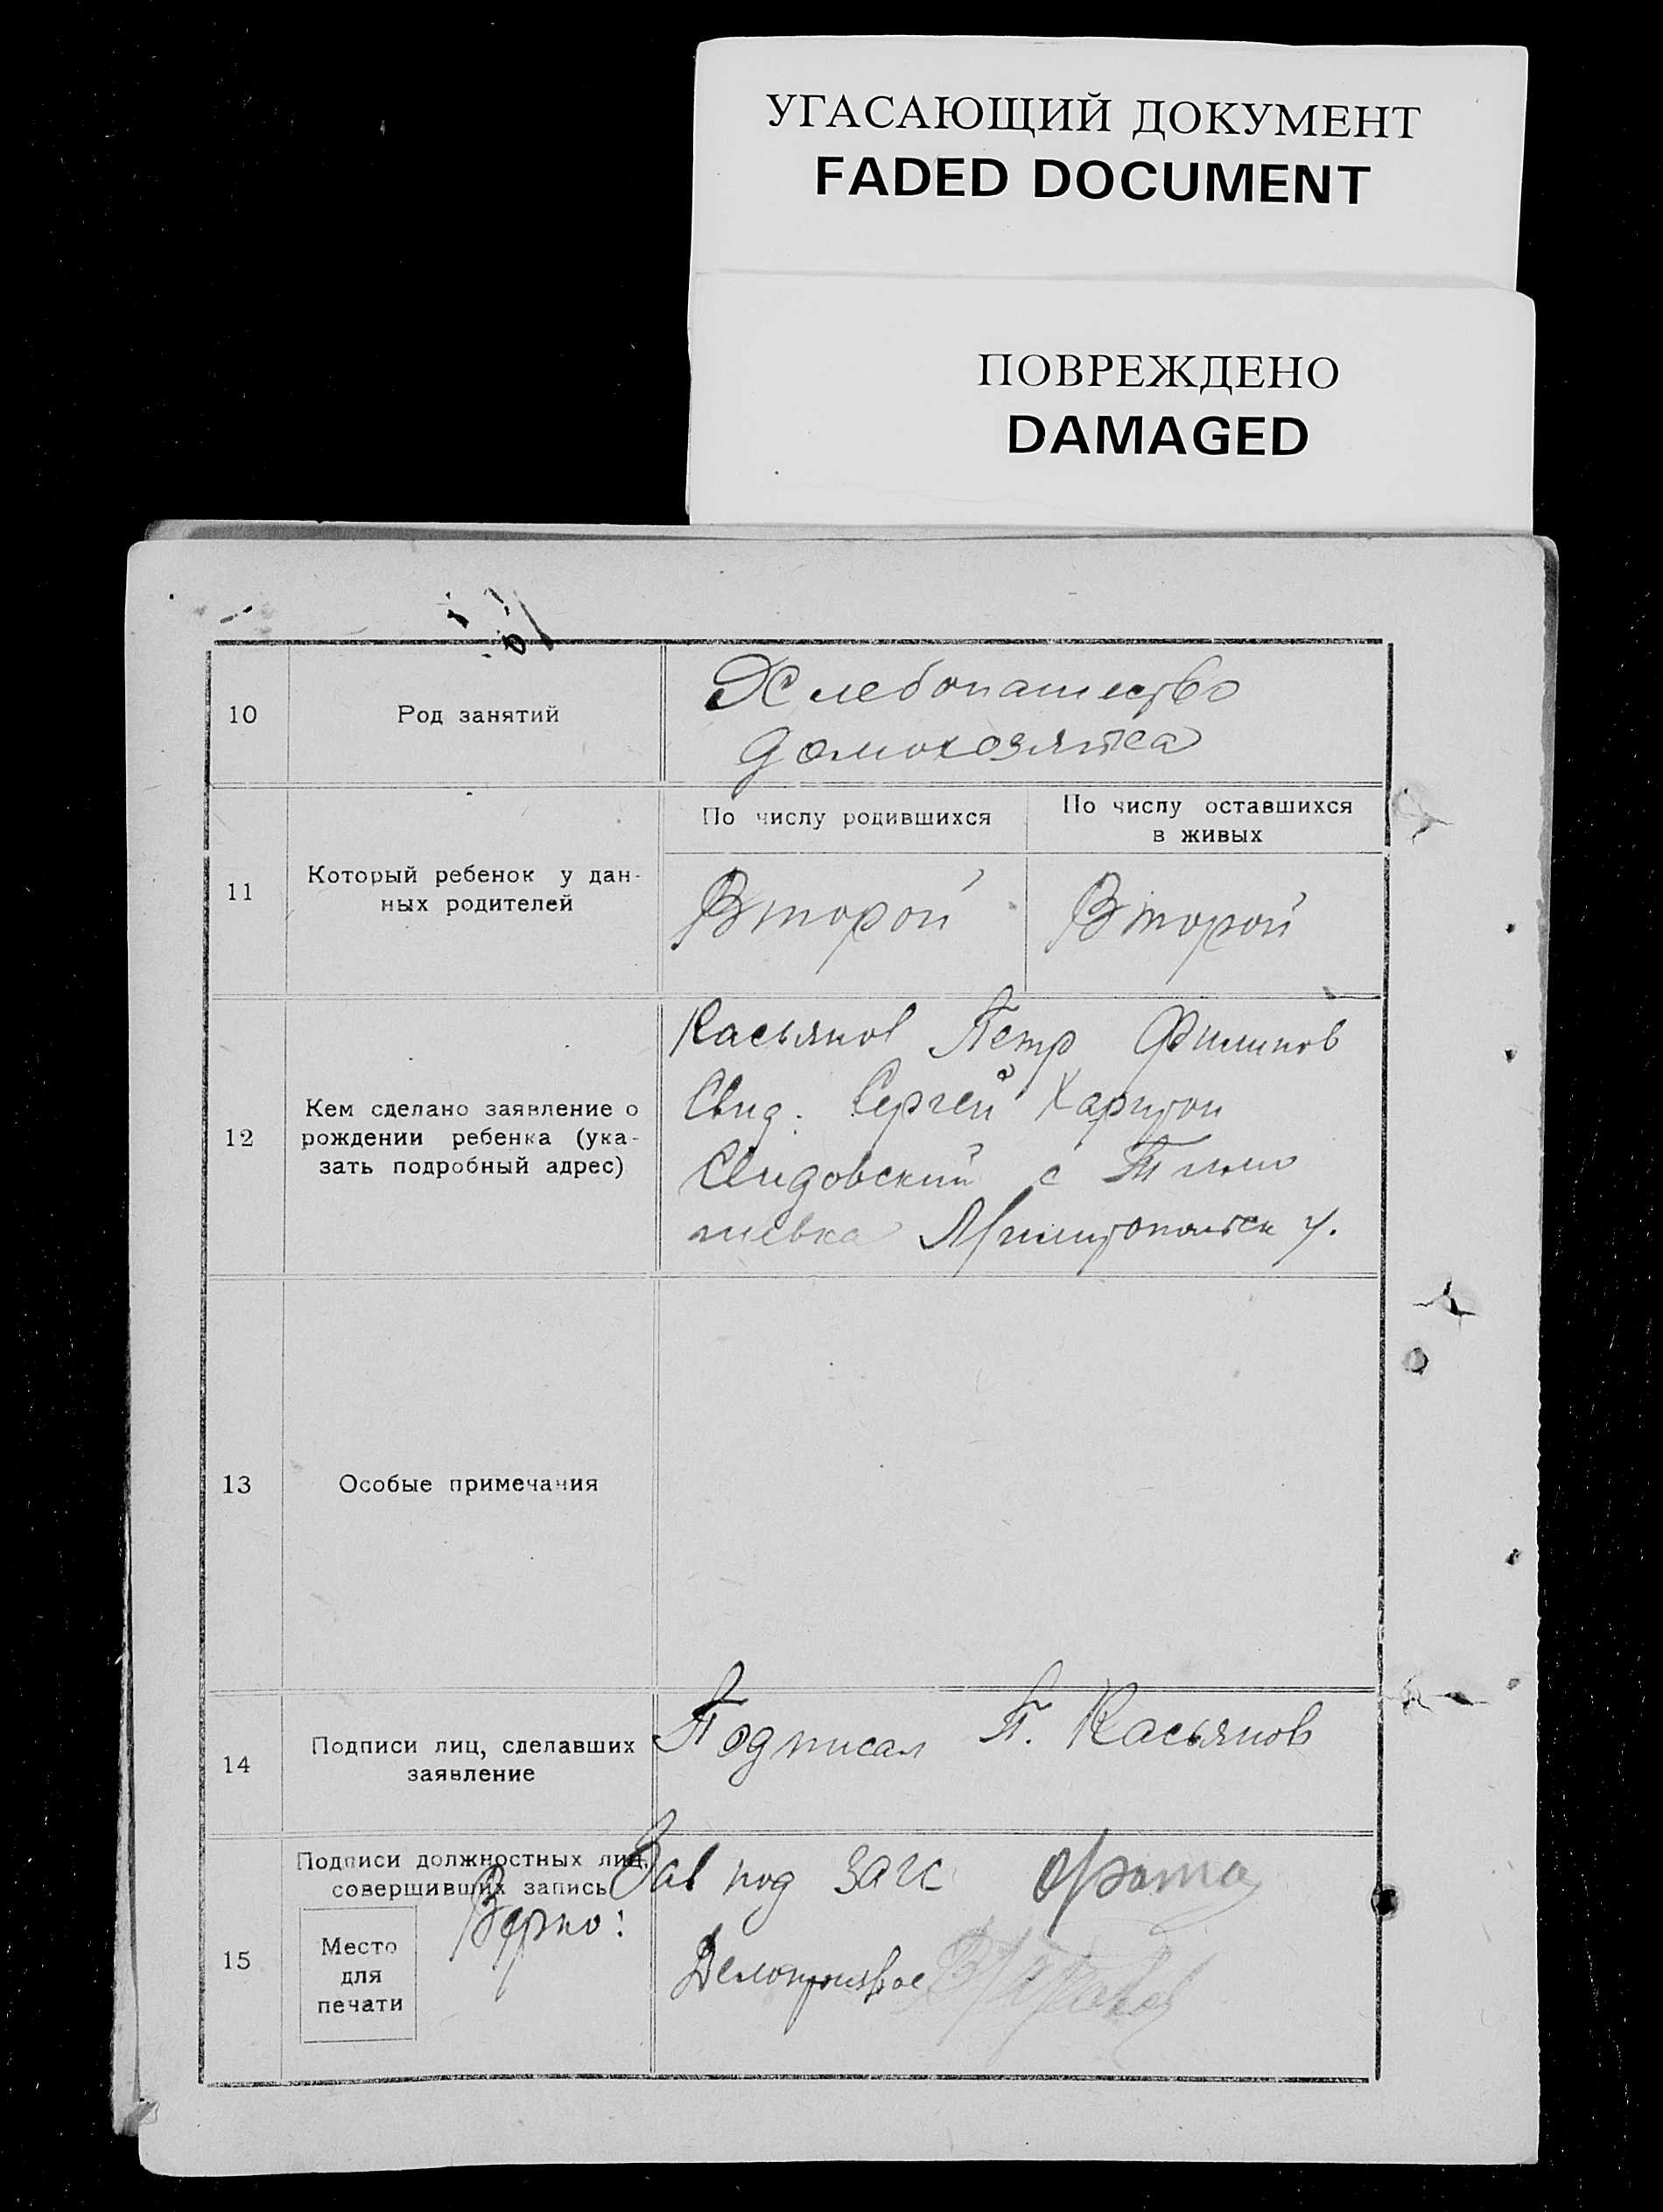 УГАСАЮЩИЙ ДОКУМЕНТ
FADED DOCUMENT
ПОВРЕЖДЕНО
DAMAGED
10
Род занятий
Хлебопашество
домохозяйка
11
Который ребенок у дан-
ных родителей
По числу родившихся
Второй
По числу оставшихся
в живых
Второй
12
Кем сделано заявление о
рождении ребенка (ука-
зать подробный адрес)
Касьянов Петр Филипов
Свид. Сергей Харитон
с Тимо
шевка у.
13
Особые примечания
14
Подписи лиц, сделавших
заявление
Подписал П. Касьянов
15
Подписи должностных лиц,
совершивших запись
Верно:
Место
для
печати
Зав под загс
Делопроизвод